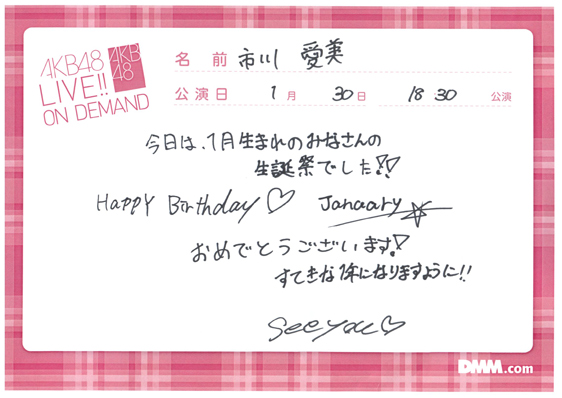 AKB48
LIVE!!
ON DEMAND
AKB
48
名前 市川 愛美
公演日 1月 30日 18 30 公演
今日は、1月生まれのみなさんの
生誕祭でした!!
Happy Birthday♡ Janaary☆
おめでとうございます!
すてきな1年になりますように!!
see you♡
DMM.com